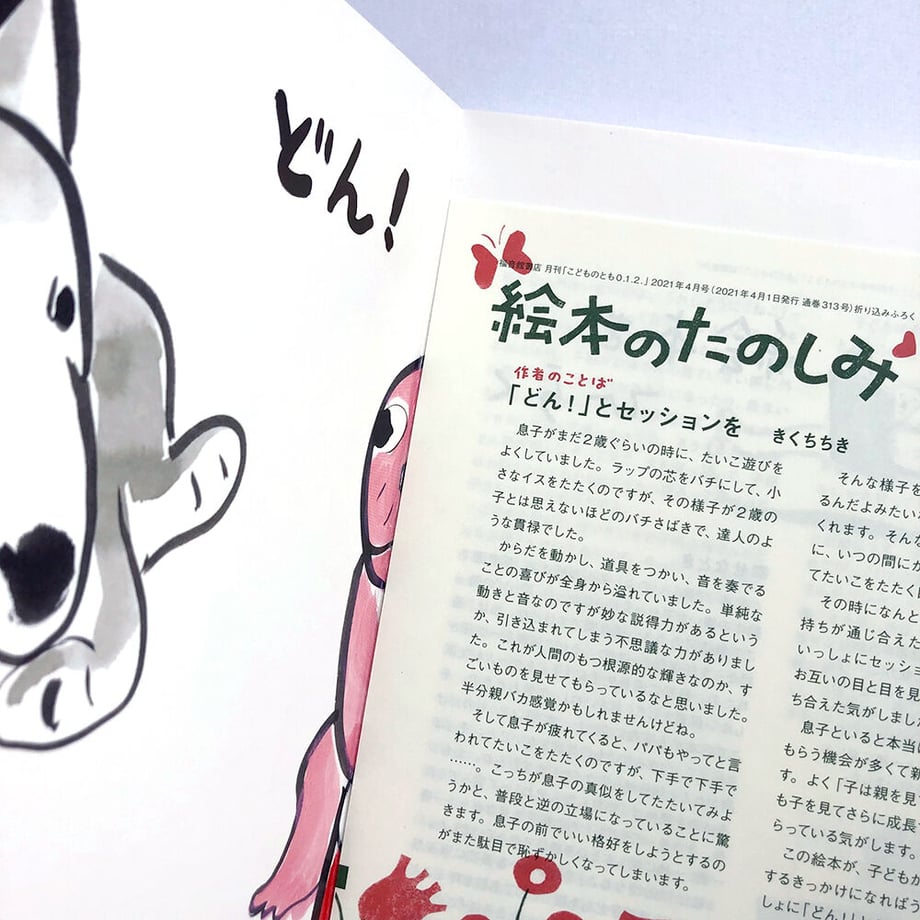 どん!
福音館書店 月刊「こどものとも0.1.2.」2021年4月号(2021年4月1日発行 通巻313号)折り込みふろく
絵本のたのしみ
作者のことば
「どん!」とセッションを きくちちき
息子がまだ2歳ぐらいの時に、たいこ遊びを
よくしていました。ラップの芯をバチにして、小
さなイスをたたくのですが、その様子が2歳の
子とは思えないほどのバチさばきで、達人のよ
うな貫禄でした。
からだを動かし、道具をつかい、音を奏でる
ことの喜びが全身から溢れていました。単純な
動きと音なのですが妙な説得力があるという
か、引き込まれてしまう不思議な力がありまし
た。これが人間のもつ根源的な輝きなのか、す
ごいものを見せてもらっているなと思いました。
半分親バカ感覚かもしれませんけどね。
そして息子が疲れてくると、パパもやってと言
われてたいこをたたくのですが、下手で下手で
……。こっちが息子の真似をしてたたいてみよ
うかと、普段と逆の立場になっていることに驚
きます。息子の前でいい格好をしようとするの
がまた駄目で恥ずかしくなってしまいます。
そんな様子を
るんだよみたい
くれます。そんな
に、いつの間にか
てたいこをたたく
その時になんと
持ちが通じ合えた
いっしょにセッショ
お互いの目と目を見
ち合えた気がしまし
息子といると本当に
もらう機会が多くて
す。よく「子は親を見て
も子を見てさらに成長
らっている気がします。
この絵本が、子どもが
するきっかけになればう
しょに「どん!」